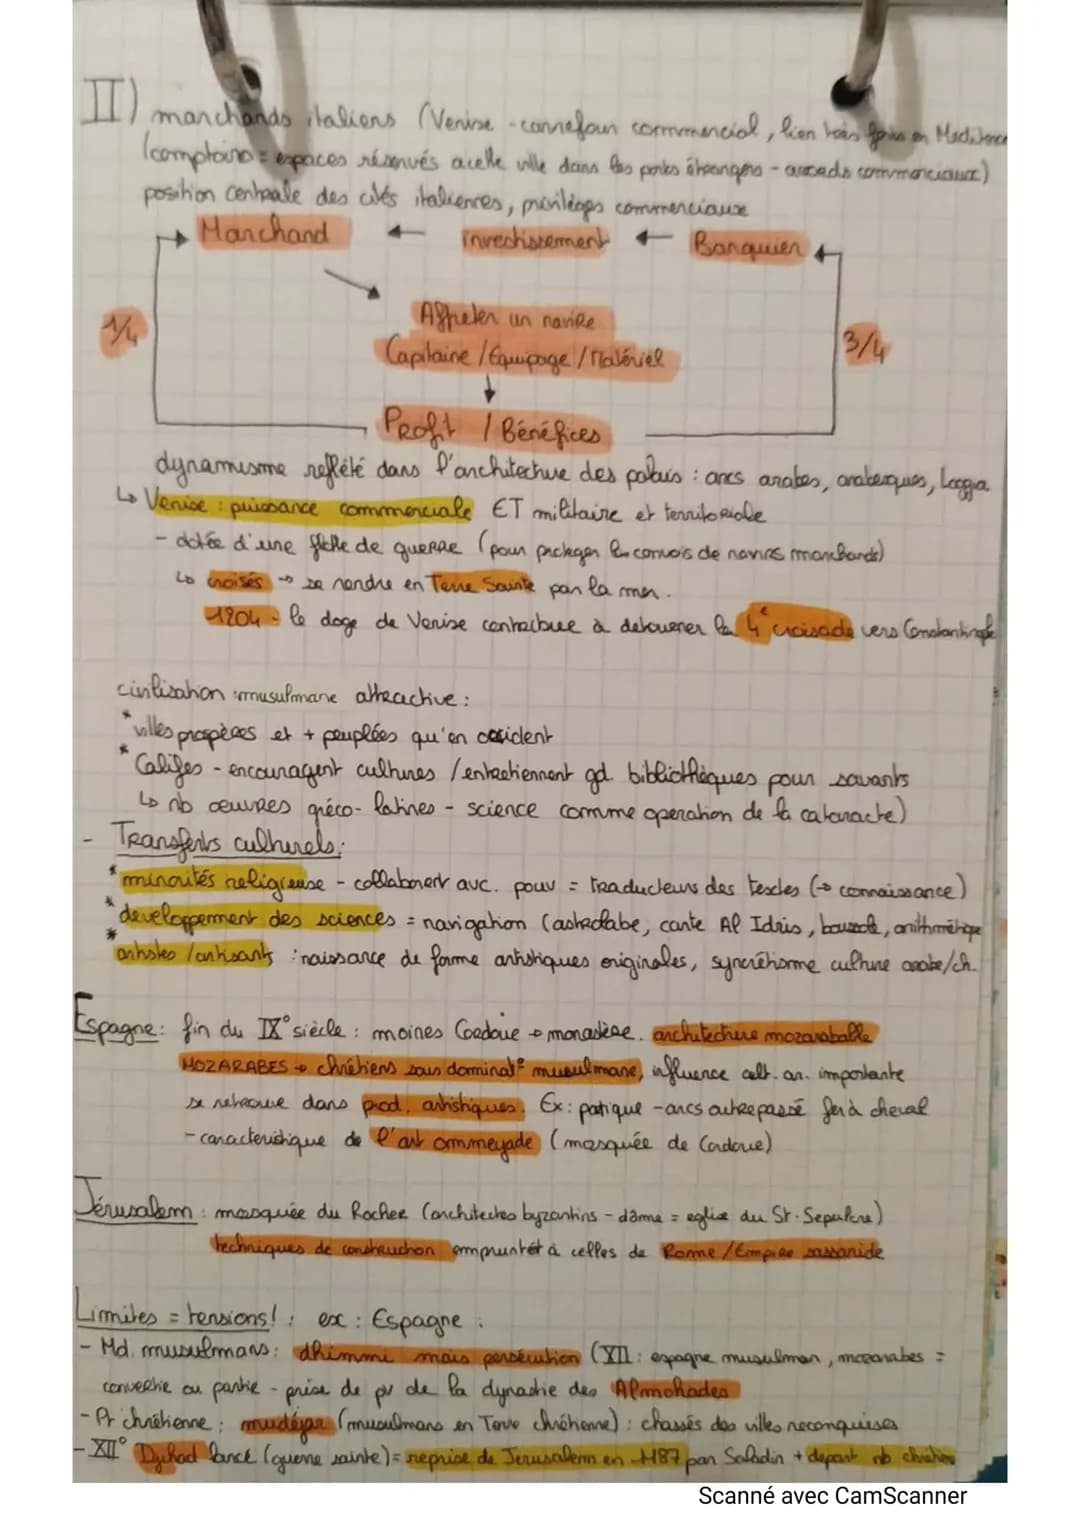 II) marchands italiens (Venise - carrefour commercial, lien trois fois en Mediterr
(comptoirs = espaces réservés a cette ville dans les ports étrangers - accords commerciaux)
position centrale des cités italiennes, privilèges commerciaux
Marchand ← invectissement ← Banquier
Affreter un navire
1/4 Capitaine / Equipage / Matériel 3/4
Profit / Bénéfices
dynamisme reflété dans l'architecture des palais : arcs arabes, arabesques, Loggia
↳ Venise : puissance commerciale ET militaire et territoriale
- dotée d'une flotte de guerre (pour proteger les convois de navires marchands)
↳ croisés → se rendre en Terre Sainte par la mer.
1204 - le doge de Venise contribue à detourner la 4e croisade vers Constantinople
civilisation musulmane attractive :
* villes prospères et + peuplées qu'en occident
* Califes - encouragent cultures / entretiennent gd. bibliothèques pour savants
↳ nb oeuvres gréco-latines - science comme operation de la cataracte)
- Transferts culturels :
* minorités religieuse - collaborent avc. pouv = traducteurs des textes (→ connaissance)
* developpement des sciences = navigation (astrolabe, carte Al Idris, boussole, arithmétique
* artistes / artisants : naissance de forme artistiques originales, syncrétisme culture arabe/ch.
Espagne : fin du IX° siècle : moines Cordoue → monastère. architecture mozarabable
MOZARABES → chrétiens sous dominat° musulmane, influence cult. ar. importante
se retrouve dans prod. artistiques. Ex : portique - arcs outrepassé fer à cheval
- caracteristique de l'art ommeyade (mosquée de Cordoue)
Jérusalem : mosquée du Rocher (architectes byzantins - dôme = eglise du St. Sepulcre)
techniques de construction emprunté à celles de Rome / Empire sassanide
Limites = tensions! : ex : Espagne :
- Md. musulmans : dhimmi mais persécution (XII : espagne musulman, mozarabes =
convertie ou partie - prise de pv de la dynastie des Almohades
- Pr chrétienne : mudéjar (musulmans en Terre chrétienne) : chassés des villes reconquises
- XII° Djihad lancé (guerre sainte) = reprise de Jerusalem en 1187 par Saladin + depart nb chrétiens
Scanné avec CamScanner